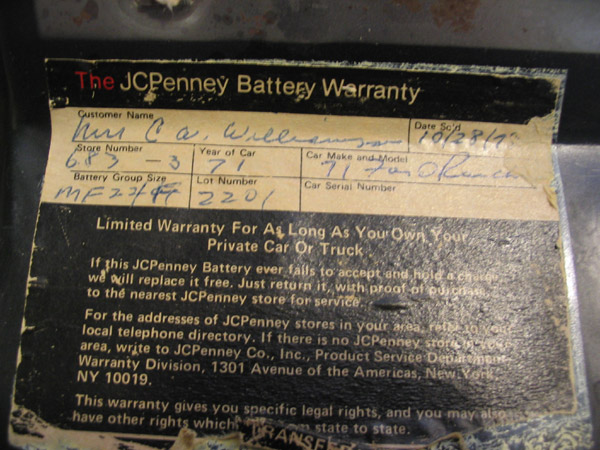 The JCPenney Battery Warranty
Customer Name
Date Sc'd
Mrs C W. Williamson 10/28/7
Store Number Year of Car Car Make and Model
683 -3 71 71 Ford
Battery Group Size Lot Number Car Serial Number
2201
Limited Warranty For As Long As You Own Your
Private Car Or Truck
If this JCPenney Battery ever fails to accept and hold a charge
we will replace it free. Just return it, with proof of purchase,
to the nearest JCPenney store for service.
For the addresses of JCPenney stores in your area, refer to your
local telephone directory. If there is no JCPenney store in your
area, write to JCPenney Co., Inc., Product Service Department,
Warranty Division, 1301 Avenue of the Americas, New York,
NY 10019.
This warranty gives you specific legal rights, and you may also
have other rights which from state to state.